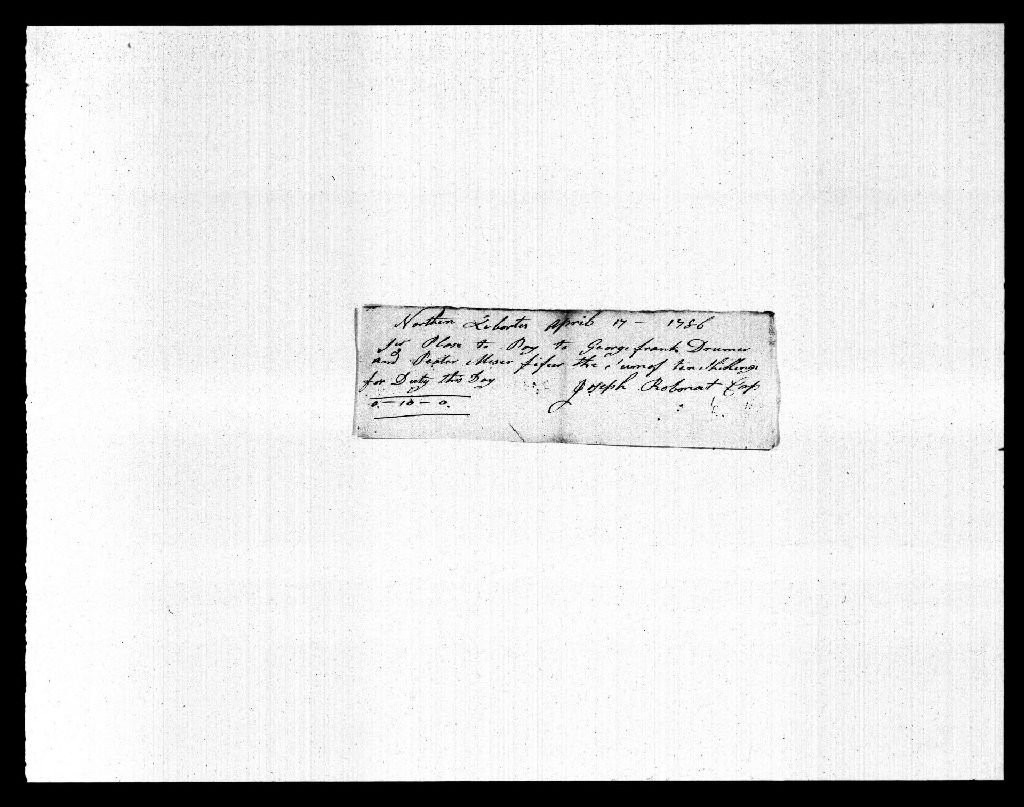 Northen Libortes April 17 - 1786
Sir Plase to Pay to George frank Drumer
and Peater Meser fifer the sum of ten Shillings
for Duty this Day
Joseph Cap
0 - 10 - 0